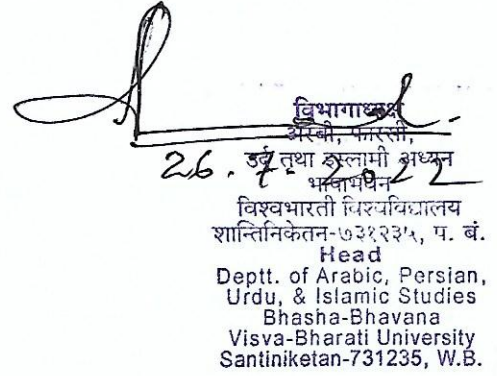 विभागाध्यक्ष
अरबी, फारसी,
उर्दू तथा इस्लामी अध्यन
26.7.2022
भाषाभवन
विश्वभारती विश्वविद्यालय
शान्तिनिकेतन-७३१२३५, प. बं.
Head
Deptt. of Arabic, Persian,
Urdu, & Islamic Studies
Bhasha-Bhavana
Visva-Bharati University
Santiniketan-731235, W.B.